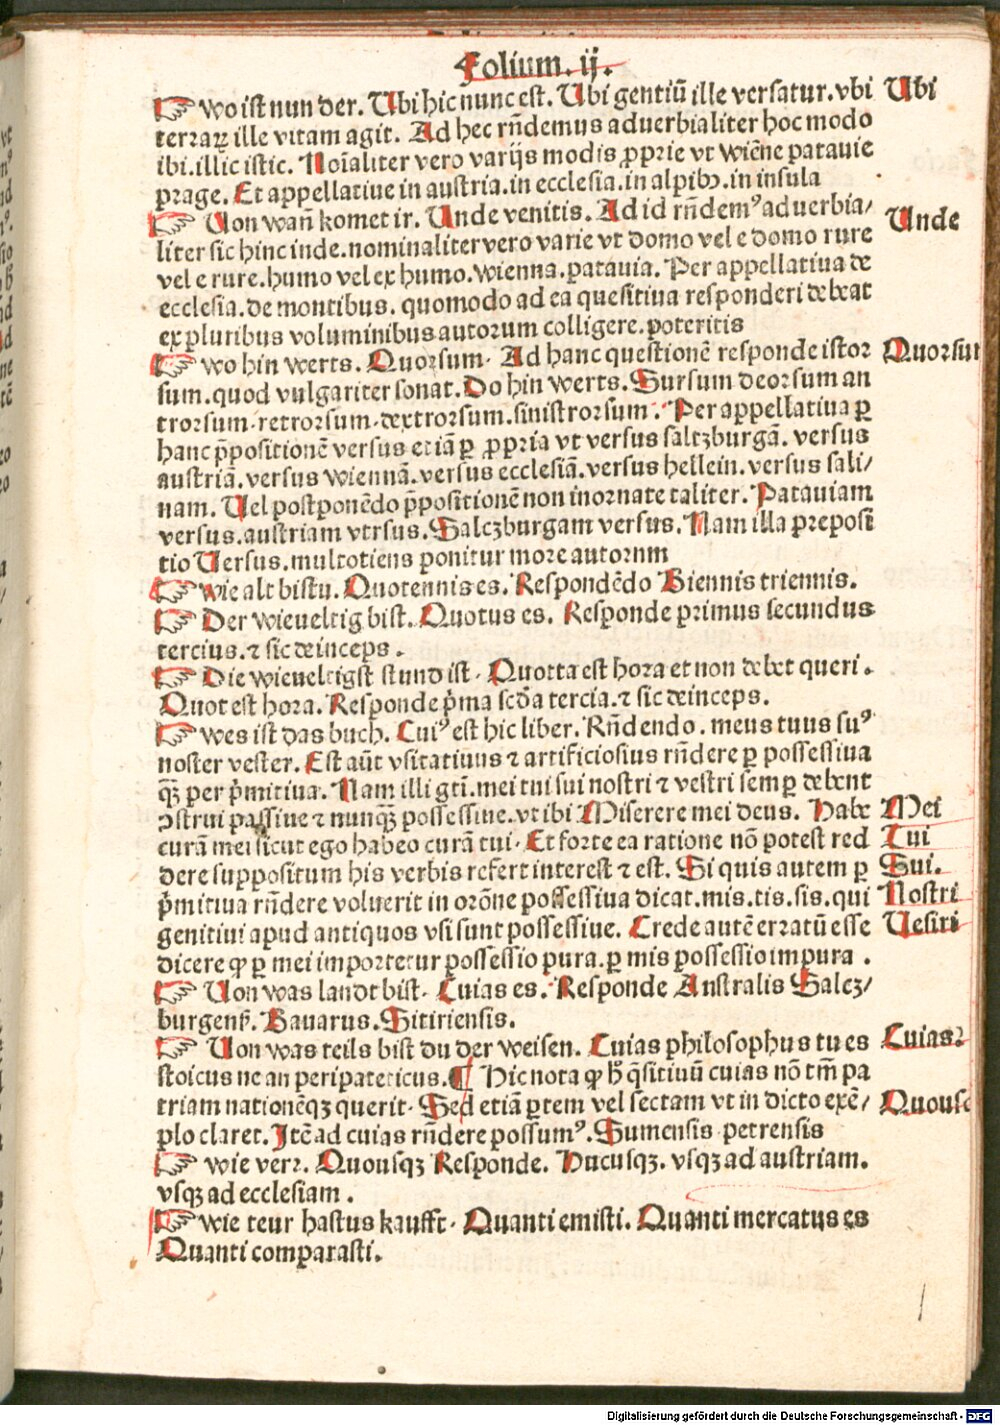 Folium. ij.
☞ wo ist nun der. Ubi hic nunc est. Ubi gentiū ille versatur. vbi Ubi
terrarꝝ ille vitam agit. Ad hec rn̄demus aduerbialiter hoc modo
ibi. illic istic. Noīaliter vero varijs modis ꝓprie vt wiēne patauie
prage. Et appellatiue in austria. in ecclesia. in alpibꝫ. in insula
☞ Von wan̄ komet ir. Unde venitis. Ad id rn̄demꝰ aduerbia/ Unde
liter sic hinc inde. nominaliter vero varie vt domo vel e domo rure
vel e rure. humo vel ex humo. wienna. patauia. Per appellatiua de
ecclesia. de montibus. quomodo ad ea quesitiua responderi debeat
ex pluribus voluminibus autorum colligere. poteritis
☞ wo hin werts. Quorsum. Ad hanc questionē responde istor Quorsum
sum. quod vulgariter sonat. Do hin werts. Sursum deorsum an
trorsum. retrorsum. dextrorsum. sinistrorsum. Per appellatiua ꝑ
hanc p̄positionē versus etiā ꝑ ꝓpria vt versus saltzburgā. versus
austriā. versus wiennā. versus ecclesiā. versus hellein. versus sali/
nam. Vel postponēdo p̄positionē non inornate taliter. Patauiam
versus. austriam versus. Salczburgam versus. Nam illa preposi
tio Versus. multotiens ponitur more autorum
☞ wie alt bistu. Quotennis es. Respondēdo Biennis triennis.
☞ Der wieueltig bist. Quotus es. Responde primus secundus
tercius. ⁊ sic deinceps.
☞ Die wieueltigst stund ist. Quotta est hora et non debet queri.
Quot est hora. Responde p̄ma scd̄a tercia. ⁊ sic deinceps.
☞ wes ist das buch. Cuiꝰ est hic liber. Rn̄dendo. meus tuus suꝰ
noster vester. Est aūt vsitatiuus ⁊ artificiosius rn̄dere ꝑ possessiua
qꝫ̄ per p̄mitiua. Nam illi gti. mei tui sui nostri ⁊ vestri semꝑ debent
ↄstrui passiue ⁊ nunqꝫ̄ possessiue. vt ibi Miserere mei deus. Habe Mei
curā mei sicut ego habeo curā tui. Et forte ea ratione nō potest red Tui
dere suppositum his verbis refert interest ⁊ est. Si quis autem ꝑ Sui.
p̄mitiua rn̄dere voluerit in orōne possessiua dicat. mis. tis. sis. qui Nostri
genitiui apud antiquos vsi sunt possessiue. Crede autē erratū esse Vestri
dicere ꝙ ꝑ mei importetur possessio pura. ꝑ mis possessio impura.
☞ Von was landt bist. Cuias es. Responde Australis Salcz/
burgenß. Bauarus. Stiriensis.
☞ Von was teils bist du der weisen. Cuias philosophus tu es Cuias?
stoicus ne an peripateticus. ¶ Hic nota ꝙ h̄ q̄sitiuū cuias nō tm̄ pa
triam nationēqꝫ querit. Sed etiā ꝑtem vel sectam vt in dicto exē/ Quousq
plo claret. Itē ad cuias rn̄dere possumꝰ. Sumensis petrensis
☞ wie verr. Quousqꝫ Responde. Hucusqꝫ. vsqꝫ ad austriam.
vsqꝫ ad ecclesiam.
☞ wie teur hastus kaufft. Quanti emisti. Quanti mercatus es
Quanti comparasti.
Digitalisierung gefördert durch die Deutsche Forschungsgemeinschaft - DFG